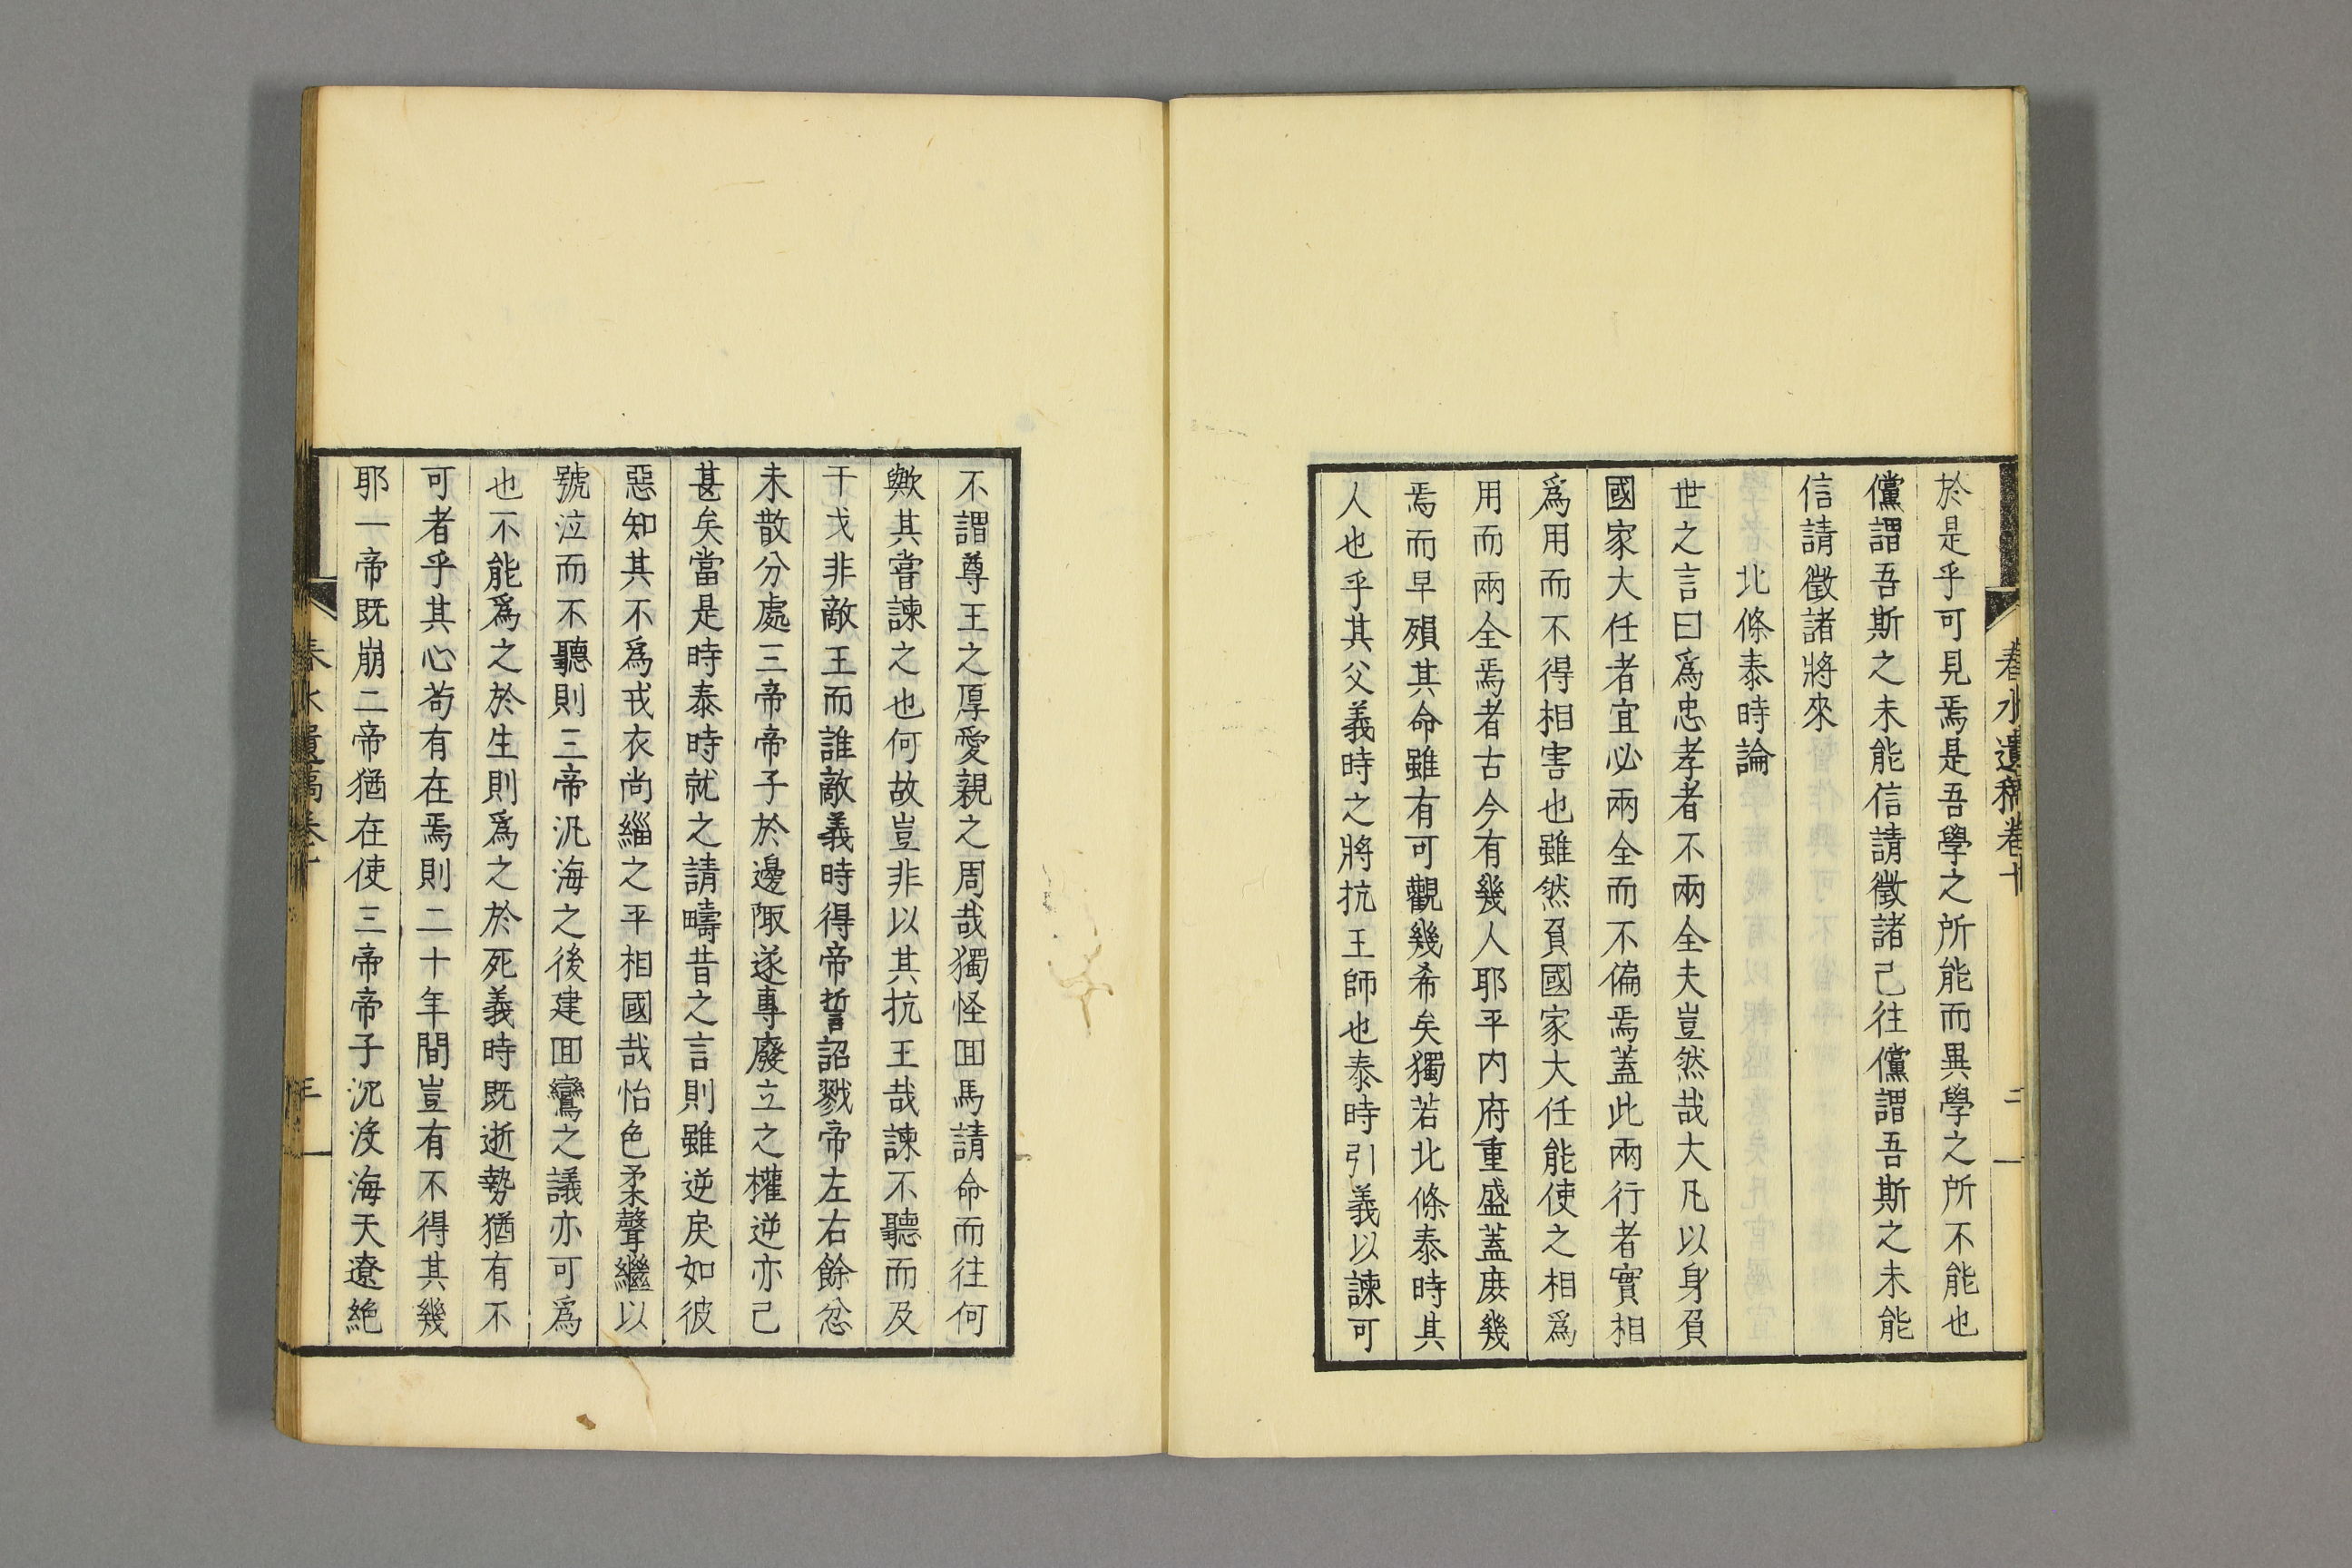 春水遺稿卷十
二
於是乎可見焉是吾學之所能而異學之所不能也
儻謂吾斯之未能信請徵諸己往儻謂吾斯之未能
信請徵諸將來
北條泰時論
世之言曰爲忠孝者不兩全夫豈然哉大凡以身負
國家大任者宜必兩全而不偏焉蓋此兩行者實相
爲用而不得相害也雖然負國家大任能使之相爲
用而兩全焉者古今有幾人耶平内府重盛蓋庶幾
焉而早殞其命雖有可觀幾希矣獨若北條泰時其
人也乎其父義時之將抗王師也泰時引義以諫可
不謂尊王之厚愛親之周哉獨怪回馬請命而往何
歟其嘗諫之也何故豈非以其抗王哉諫不聽而及
干戈非敵王而誰敵義時得帝誓詔戮帝左右餘忿
未散分處三帝帝子於邊陬遂專廢立之權逆亦己
甚矣當是時泰時就之請疇昔之言則雖逆戾如彼
惡知其不爲戎衣尚緇之平相國哉怡色柔聲繼以
號泣而不聽則三帝汎海之後建回鸞之議亦可爲
也不能爲之於生則爲之於死義時既逝勢猶有不
可者乎其心苟有在焉則二十年間豈有不得其幾
耶一帝既崩二帝猶在使三帝帝子沉沒海天遼絶
春水遺稿卷十
三